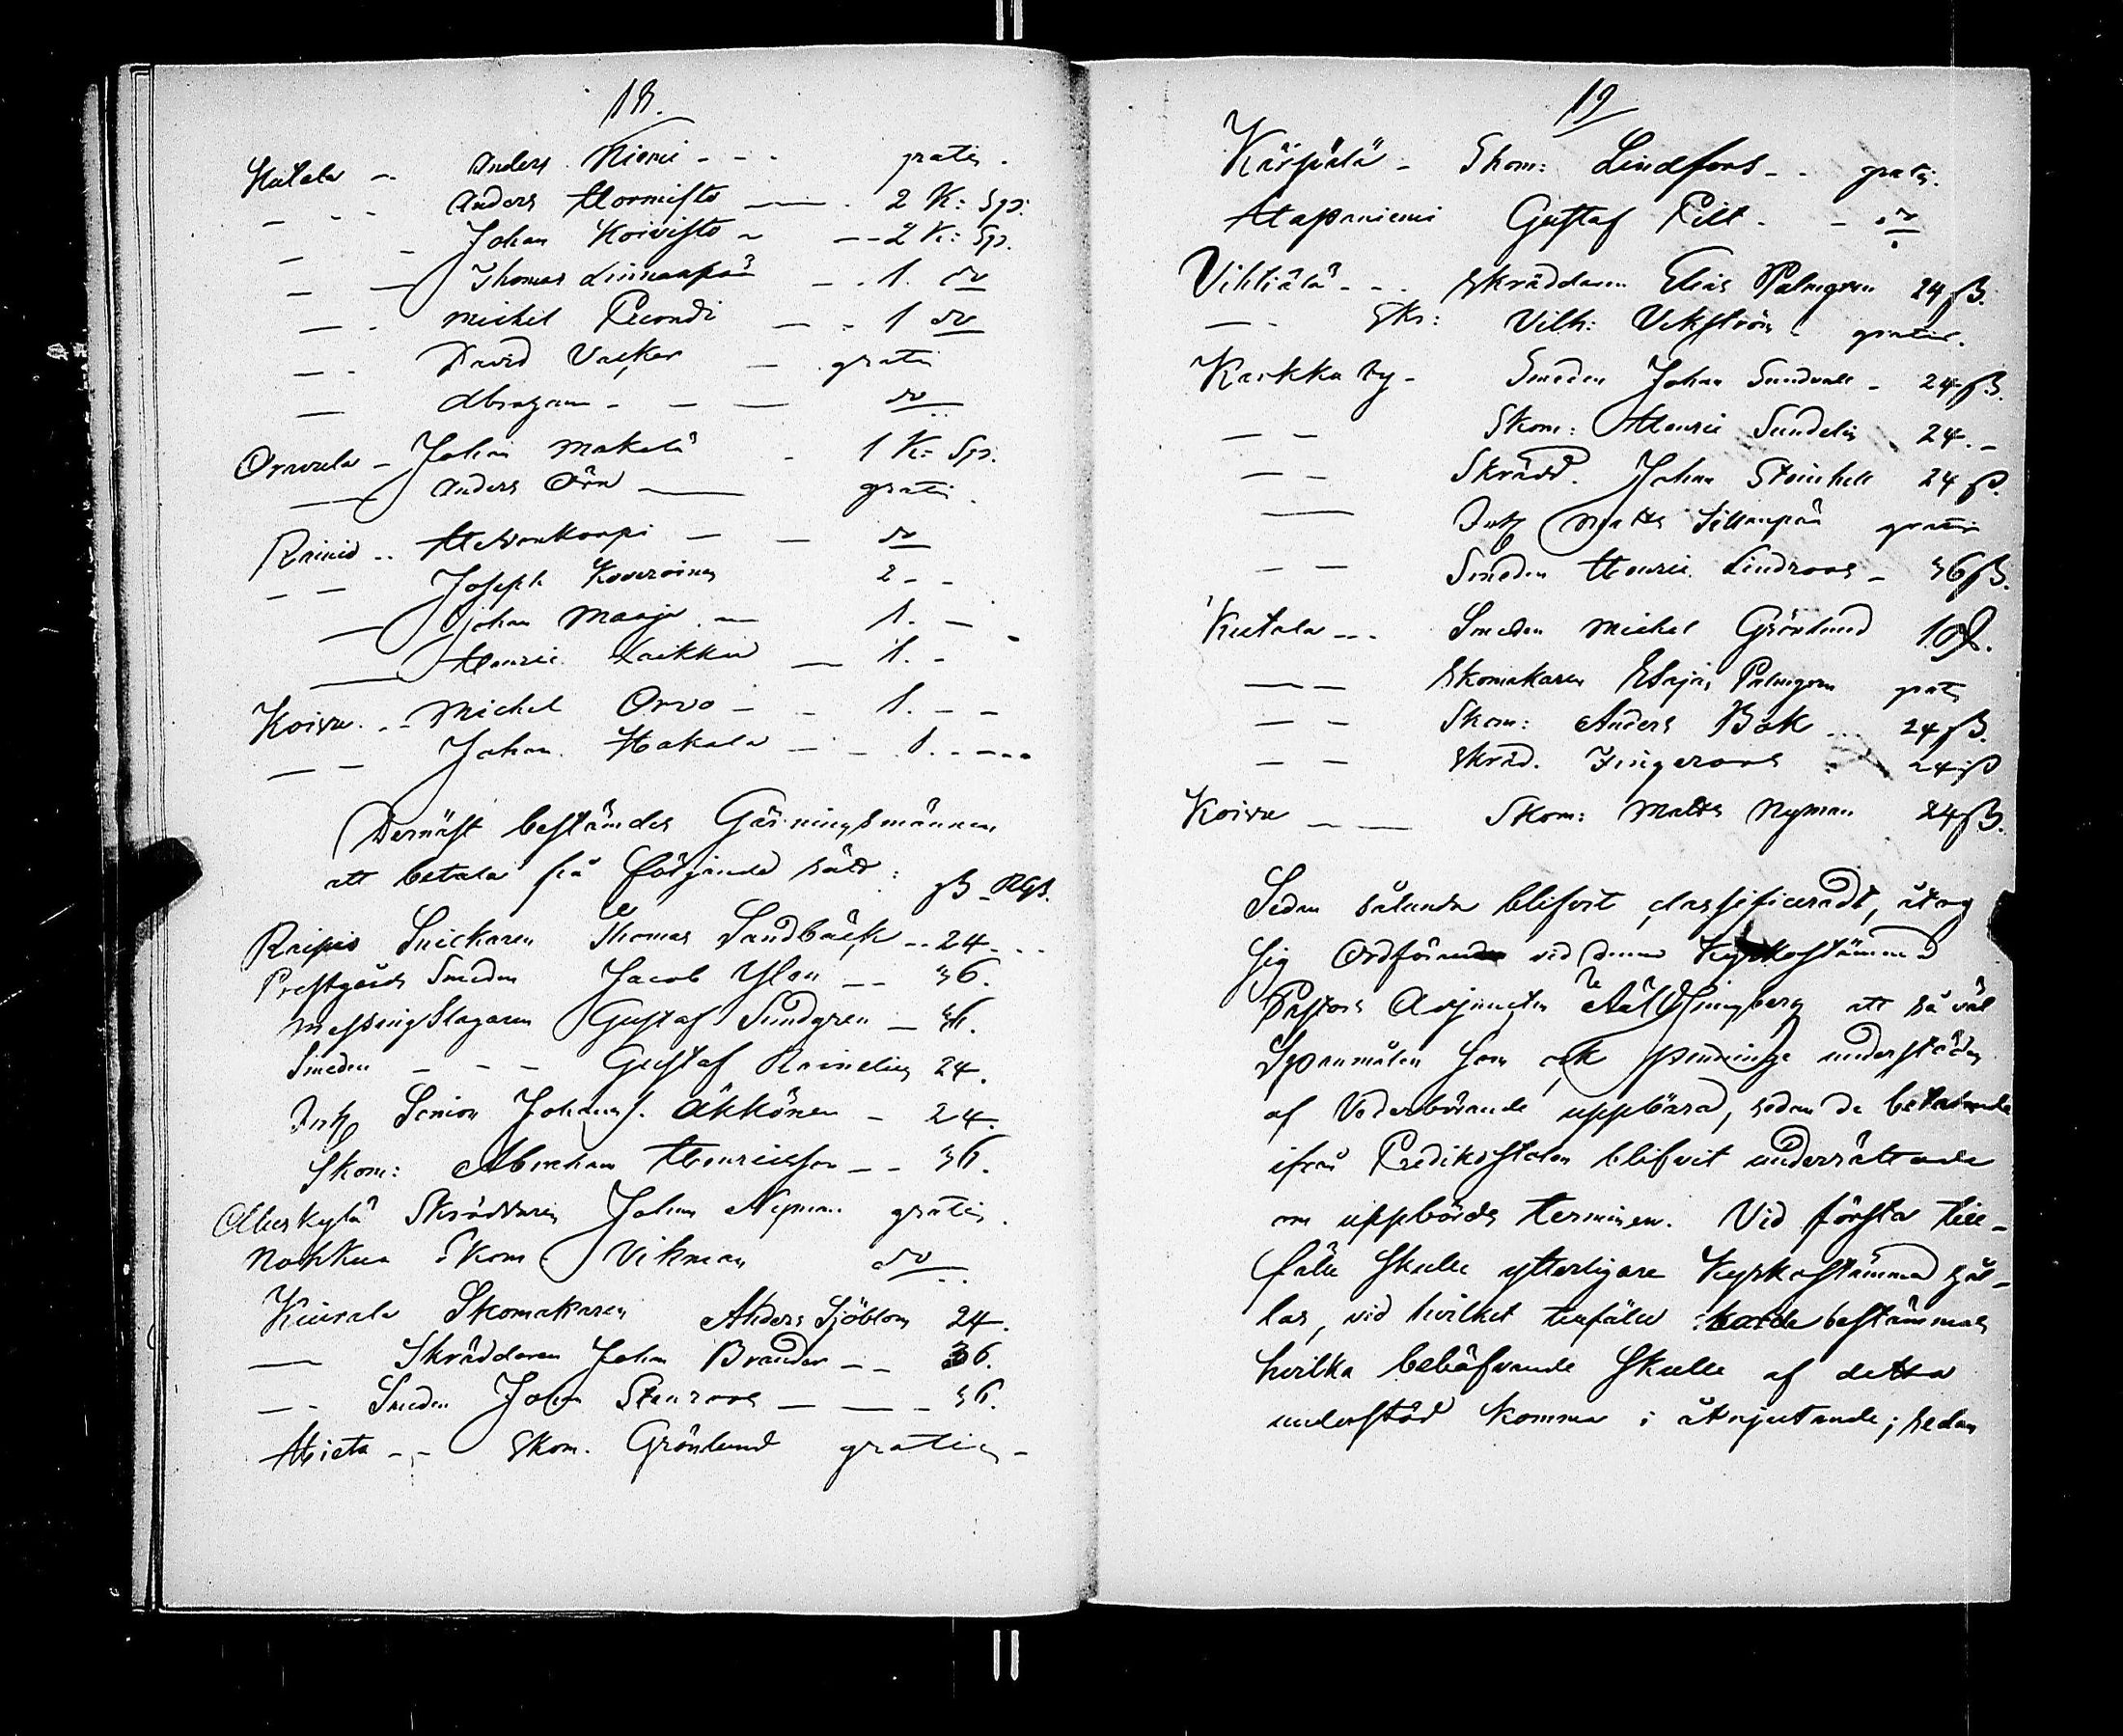 18.
Hutala - Anders Niemi - - - gratis.
- - - Anders Hormisto - 2 K: Sp:
- - Johan Koivisto - - - 2 K: Sp.
- - Thomas Linnanpää - - 1. do
- - Michel Peeondi - - 1 do
- - David Vacker - gratis
- Abraham - - - do
Oravala - Johan Makelä - 1 K: Sp.
- Anders Örn - gratis.
Rainio - - Hervankorpi - - do
- - Joseph Koveroinen 2 - -
- Johan Maaja - 1. -
- Henric Laikko - 1. -
Koivu - - Michel Orvo - - 1. - -
- - Johan Hakala - - 1. - - -
Dernäst bestämdes Gärningsmännen
att betala på följande sätt: ß RGS.
Raipio Snickaren Thomas Sandbäck - - 24 - -
Prestgårds Smeden Jacob Ylen - - 36.
Messingslagaren Gustaf Sundgren - 36.
Smeden - - - Gustaf Rainelius 24.
Inh Senior Johan Äkkönen - 24.
Skom: Abraham Henricsson - - 36.
Aluskylä Skräddaren Johan Nyman gratis.
Nohkua Skom Vikman do
Kiurala Skomakaren Anders Sjöblom 24.
- Skräddaren Johan Brander - - 36.
- - Smeden Johan Stenroos - - - 36.
Hieta - - Skom. Grönlund gratis -
19
Kärpälä - Skom: Lindfors - - gratis.
Haapaniemi Gustaf Pilt - - do
Vihtiälä - - - Skräddaren Elias Palmgren 24 ß.
- - Skr: Vilh: Vikström - gratis.
Karkku by - Smeden Johan Sundvall - 24 ß.
- - Skom: Henric Sundelin 24. -
- - Skrädd. Johan Steinhell 24 ß.
- Inh Matts Sillanpää gratis
- - Smeden Henric Lindroos - 36 ß.
Kutala - - - Smeden Michel Grönlund 10 ß.
- - Skomakaren Esajas Palmgren gratis
- - Skom: Anders Bok - - 24 ß.
- - Skräd. Zingeroos 24 ß
Koivu - - Skom: Matts Nyman 24 ß.
Sedan sålunda blifvit classificeradt, åtog
sig Ordföranden vid denna Kyrkostämma
Pastors Adjuncten Helsingberg att så väl
Spanmålen som ock penninge understöden
af Vederbörande uppbära, sedan de betalande
ifrån Predikostolen blifvit underrättade
om uppbörds terminen. Vid första till-
fälle skulle ytterligare Kyrkostämma hål-
las, vid hvilket tillfälle borde bestämmas
hvilka behöfvande skulle af detta
understöd komma i åtnjutande; sedan